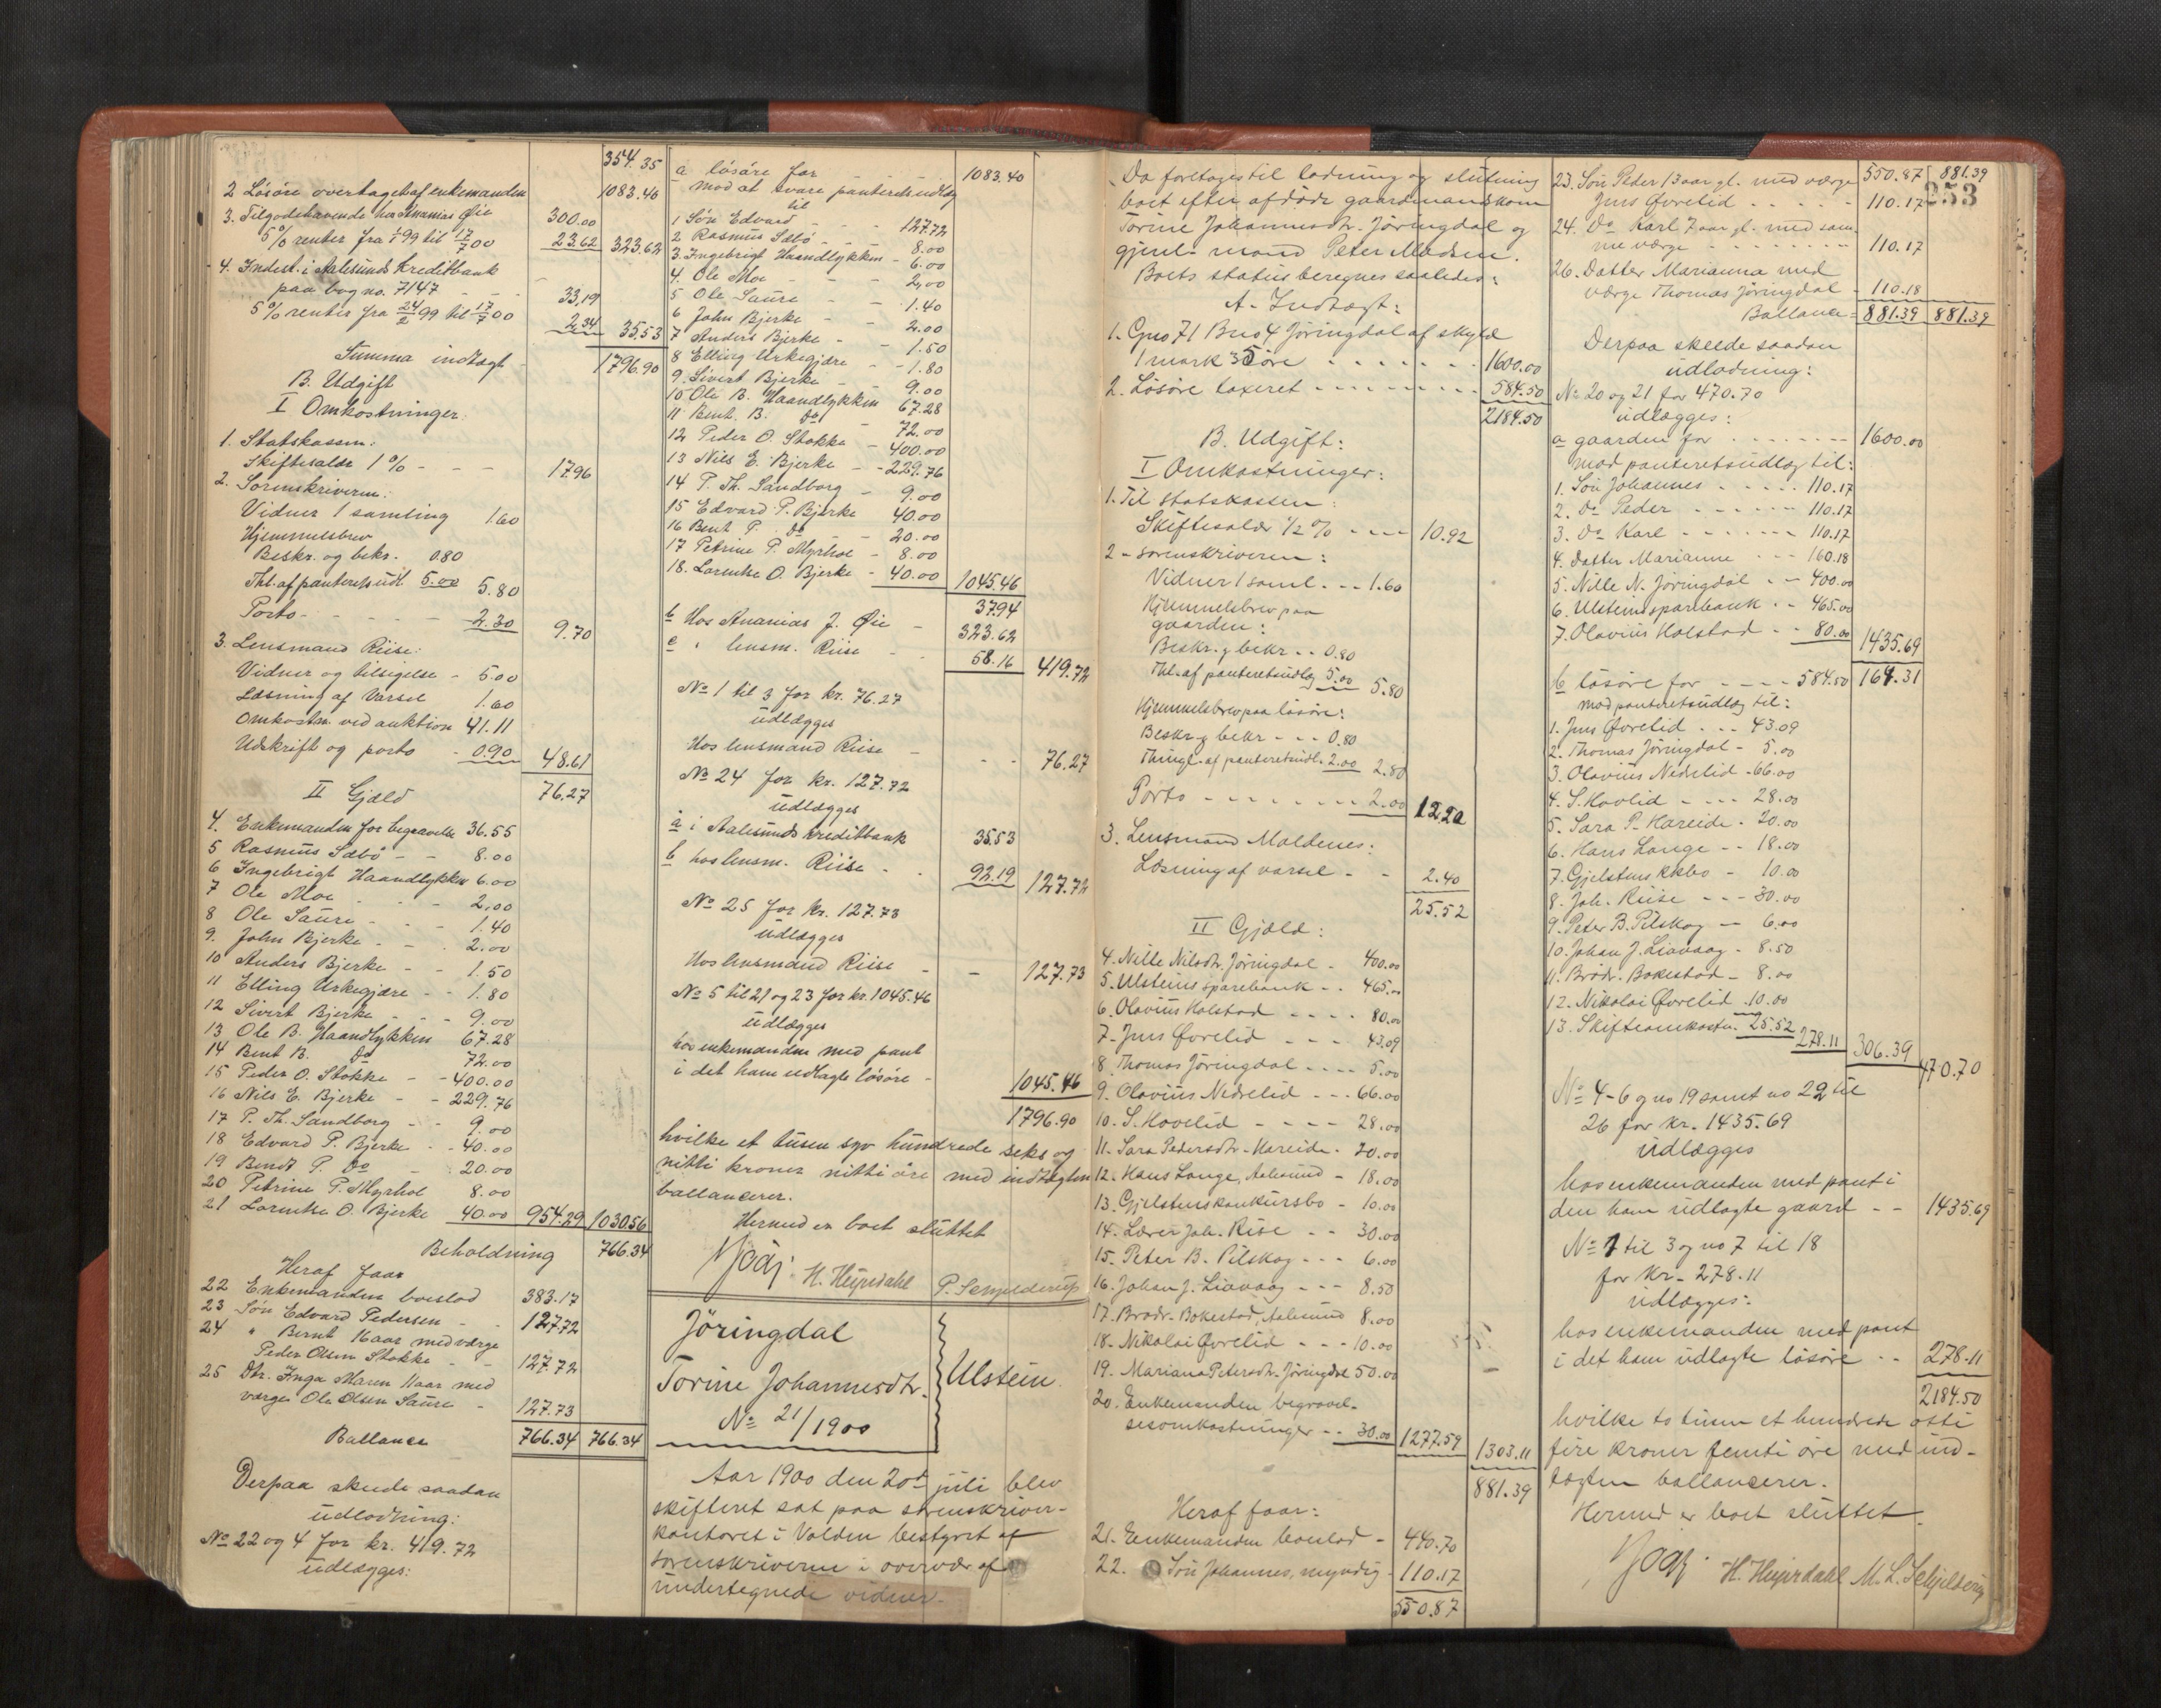 354.35
2 Lösöre overtaget af enkemanden 1083.40
3. Tilgodehavende hos Ananias Øie 300.00
5% renter fra 1/1 99 til 17/7 00 23.62 323.62
4. Indest. i Aalesunds Kreditbank
paa bog no. 7147 - - - 33.19
5% renter fra 24/2 99 til 17/7 00 2.34 35.53
Summa indtægt - 1796.90
B. Udgift
I Omkostninger:
1. Statskassen:
Skifteafgift 1% - - - 17.96
2. Sorenskriveren:
Vidner 1 samling 1.60
Hjemmelsbrev
Beskr. og bekr. 0.80
Thl. af panteretsudl. 5.00 5.80
Porto - - - - - 2.30 9.70
3. Lensmand Riise:
Vidner og tilsigelse - 5.00
Læsning af Varsel 1.60
Omkostn. ved auktion 41.11
Udskrift og porto - 0.90 48.61
II Gjæld 76.27
4. Enkemanden for begravelse 36.55
5 Rasmus Sæbö - - 8.00
6 Ingebrigt Haandlykken 6.00
7 Ole Moe - - - 2.00
8 Ole Saure - - - 1.40
9. John Bjerke - - - 2.00
10 Anders Bjerke - - 1.50
11 Elling Urkegjære - - 1.80
12 Sivert Bjerke - - - 9.00
13 Ole B. Haandlykken 67.28
14 Bent B. Do 72.00
15 Peder O. Stokke - - 400.00
16 Nils E. Bjerke - - 229.76
17 P. Th. Sandborg - - 9.00
18 Edvard P. Bjerke - 40.00
19 Bendt P. Do - 20.00
20 Petrine P. Myrhol 8.00
21 Lorentse O. Bjerke 40.00 954.29 1030.56
Beholdning 766.34
Heraf faar
22 Enkemanden boeslod 383.17
23 Søn Edvard Pedersen - - 127.72
24 " Bernt 16 aar med værge
Peder Olsen Stokke - - 127.72
25 Dtr. Inga Maren 11 aar med
værge Ole Olsen Saure - 127.73
Ballance 766.34 766.34
Derpaa skeede saadan
udlodning:
No 22 og 4 for kr. 419.72
udlægges:
a lösöre for - - - 1083.40
mod at svare panteretsudlæg
til
1 Søn Edvard - - - 127.72
2 Rasmus Sæbö - - - 8.00
3 Ingebrigt Haandlykken - 6.00
4. Ole Moe - - - 2.00
5 Ole Saure - - 1.40
6 John Bjerke - - 2.00
7 Anders Bjerke - - 1.50
8 Elling Urkegjære - - 1.80
9. Sivert Bjerke - - 9.00
10 Ole B. Haandlykken 67.28
11 Bent. B. Do - 72.00
12 Peder O. Stokke - 400.00
13 Nils E. Bjerke - - 229.76
14 P. Th. Sandborg - 9.00
15 Edvard P. Bjerke 40.00
16 Bent P. Do - 20.00
17 Petrine P. Myrhol - 8.00
18. Lorentse O. Bjerke - 40.00 1045.46
37.94
b Hos Ananias J. Øie - 323.62
c " lensm. Riise - - 58.16 419.72
No 1 til 3 for kr. 76.27
udlægges
Hos lensmand Riise - - - 76.27
No 24 for kr. 127.72
udlægges
a i Aalesunds Kreditbank 35.53
b hos lensm. Riise - - 92.19 127.72
No 25 for kr. 127.73
udlægges
Hos lensmand Riise - - 127.73
No 5 til 21 og 23 for kr. 1045.46
udlægges
hos enkemanden med pant
i det ham udlagte lösöre - 1045.46
1796.90
hvilke et tusen syv hundrede seks og
nitti kroner nitti öre med indtægten
ballancerer.
Hermed er boet sluttet
H. Heyerdahl P. Schjelderup
Jöringdal
Torine Johannesdtr. Ulstein
No 21/1900
Aar 1900 den 20de juli blev
skifteret sat paa sorenskriver-
kontoret i Volden bestyret af
sorenskriveren i overvær af
undertegnede vidner.
Da foretoges til lodning og slutning
boet efter afdöde gaardmandskone
Torine Johannesdtr. Jöringdal og
gjenl. mand Peter Madsen.
Boets status beregnes saaledes:
A. Indtægt:
1. Gno 71 Bno 4 Jöringdal af skyld
1 mark 35 öre - - - - - 1600.00
2. Lösöre taxeret - - - - - - 584.50
2184.50
B. Udgift:
I Omkostninger:
1. Til statskassen:
Skifteafgift 1/2 % - - - - 10.92
2 - sorenskriveren:
Vidner 1 saml. - - 1.60
Hjemmelsbrev paa
gaarden:
Beskr. og bekr. - - 0.80
Thl. af panteretsudlæg 5.00 5.80
Hjemmelsbrev paa lösöre:
Beskr. og bekr. - - - 0.80
Thingl. af panteretsudl. 2.00 2.80
Porto - - - - - - - 2.00 12.20
3. Lensmand Maldenes:
Læsning af varsel - - 2.40
25.52
II Gjæld:
4. Nille Nilsdtr. Jöringdal - 400.00
5. Ulsteins sparebank - - 465.00
6. Olavius Holstad - - - - 80.00
7. Jens Øvrelid - - - 43.09
8. Thomas Jöringdal - - - - 5.00
9. Olavius Nedrelid - - - 66.00
10. S. Hovlid - - - - 28.00
11. Sara Pedersdtr. Hareide. 20.00
12. Hans Lange, Aalesund - 18.00
13. Gjelstens konkursbo - 10.00
14. Lærer Joh. Riise - - 30.00
15. Peter B. Pilskog - - - 6.00
16. Johan J. Liavaag - - - 8.50
17. Brødr. Bakestad, Aalesund 8.00
18. Nikolai Øvrelid - - - 10.00
19. Mariane Petersdtr. Jöringdal 50.00
20. Enkemanden begravel-
sesomkostninger - - 30.00 1277.59 1303.11
881.39
Heraf faar:
21. Enkemanden boeslod - 440.70
22. Søn Johannes, myndig - 110.17
550.87
550.87 881.39
253
23. Søn Peder 13 aar gl. med værge
Jens Øvrelid - - - - - 110.17
24. Do Karl 7 aar gl. med sam-
me værge - - - - - - - - 110.17
26. Datter Marianna med
værge Thomas Jöringdal - 110.18
Ballance 881.39 881.39
Derpaa skeede saadan
udlodning:
No 20 og 21 for 470.70
udlægges:
a gaarden for - - - - - - 1600.00
mod panteretsudlæg til:
1. Søn Johannes - - - - - 110.17
2. Do Peder - - - - - - 110.17
3. Do Karl - - - - - - - 110.17
4. Datter Marianne - - - 160.18
5. Nille N. Jöringdal - - 400.00
6. Ulsteins sparebank - - 465.00
7. Olavius Holstad - - 80.00 1435.69
b lösöre for - - - - 584.50 164.31
mod panteretsudlæg til:
1. Jens Øvrelid - - - 43.09
2. Thomas Jöringdal - 5.00
3. Olavius Nedrelid - 66.00
4. S. Hovlid - - - - 28.00
5. Sara P. Hareide - 20.00
6. Hans Lange - - 18.00
7. Gjelstens kkbo - 10.00
8. Joh. Riise - - - 30.00
9. Peter B. Pilskog - - 6.00
10. Johan J. Liavaag - 8.50
11. Brödr. Bakestad - 8.00
12. Nikolai Øvrelid - 10.00
13. Skifteomkostn. 25.52 278.11 306.39 470.70
No 4-6 og no 19 samt no 22 til
26 for kr. 1435.69
udlægges
hos enkemanden med pant i
den ham udlagte gaard - - 1435.69
No 1 til 3 og no 7 til 18
for kr. 278.11
udlægges:
hos enkemanden med pant
i det ham udlagte lösöre - - 278.11
2184.50
hvilke to tusen et hundrede otti
fire kroner femti öre med ind-
tægten ballancerer.
Hermed er boet sluttet.
H. Heyerdahl M. L. Schjelderup